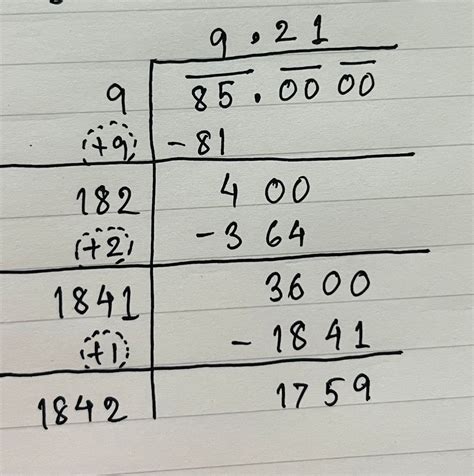 9.21
9 85.00 00
(+9) -81
182 4 00
(+2) -3 64
1841 36 00
(+1) - 18 41
1842 17 59